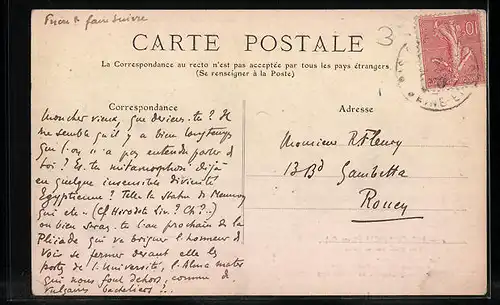 Prière faire suivre
3
CARTE POSTALE
La Correspondance au recto n'est pas acceptée par tous les pays étrangers
(Se renseigner à la Poste)
Correspondance
Adresse
Mon cher vieux, que deviens-tu ? Il
me semble qu'il y a bien longtemps
que l'on n'a pas entendu parler de
toi ? Es-tu métamorphosé déjà
en quelque insensible divinité
Égyptienne ? Telle la statue de Memnon
qui etc. (Cf Hérodote Liv. ? Ch ?..)
ou bien seras-tu l'an prochain de la
Pléiade qui va briguer l'honneur de
voir se fermer devant elle les
portes de l'Université, l'Alma mater
qui nous fout dehors, comme de
vulgaires bacheliers ?..
Monsieur R Fleury
13 Bd Gambetta
Rouen
10
SEINE